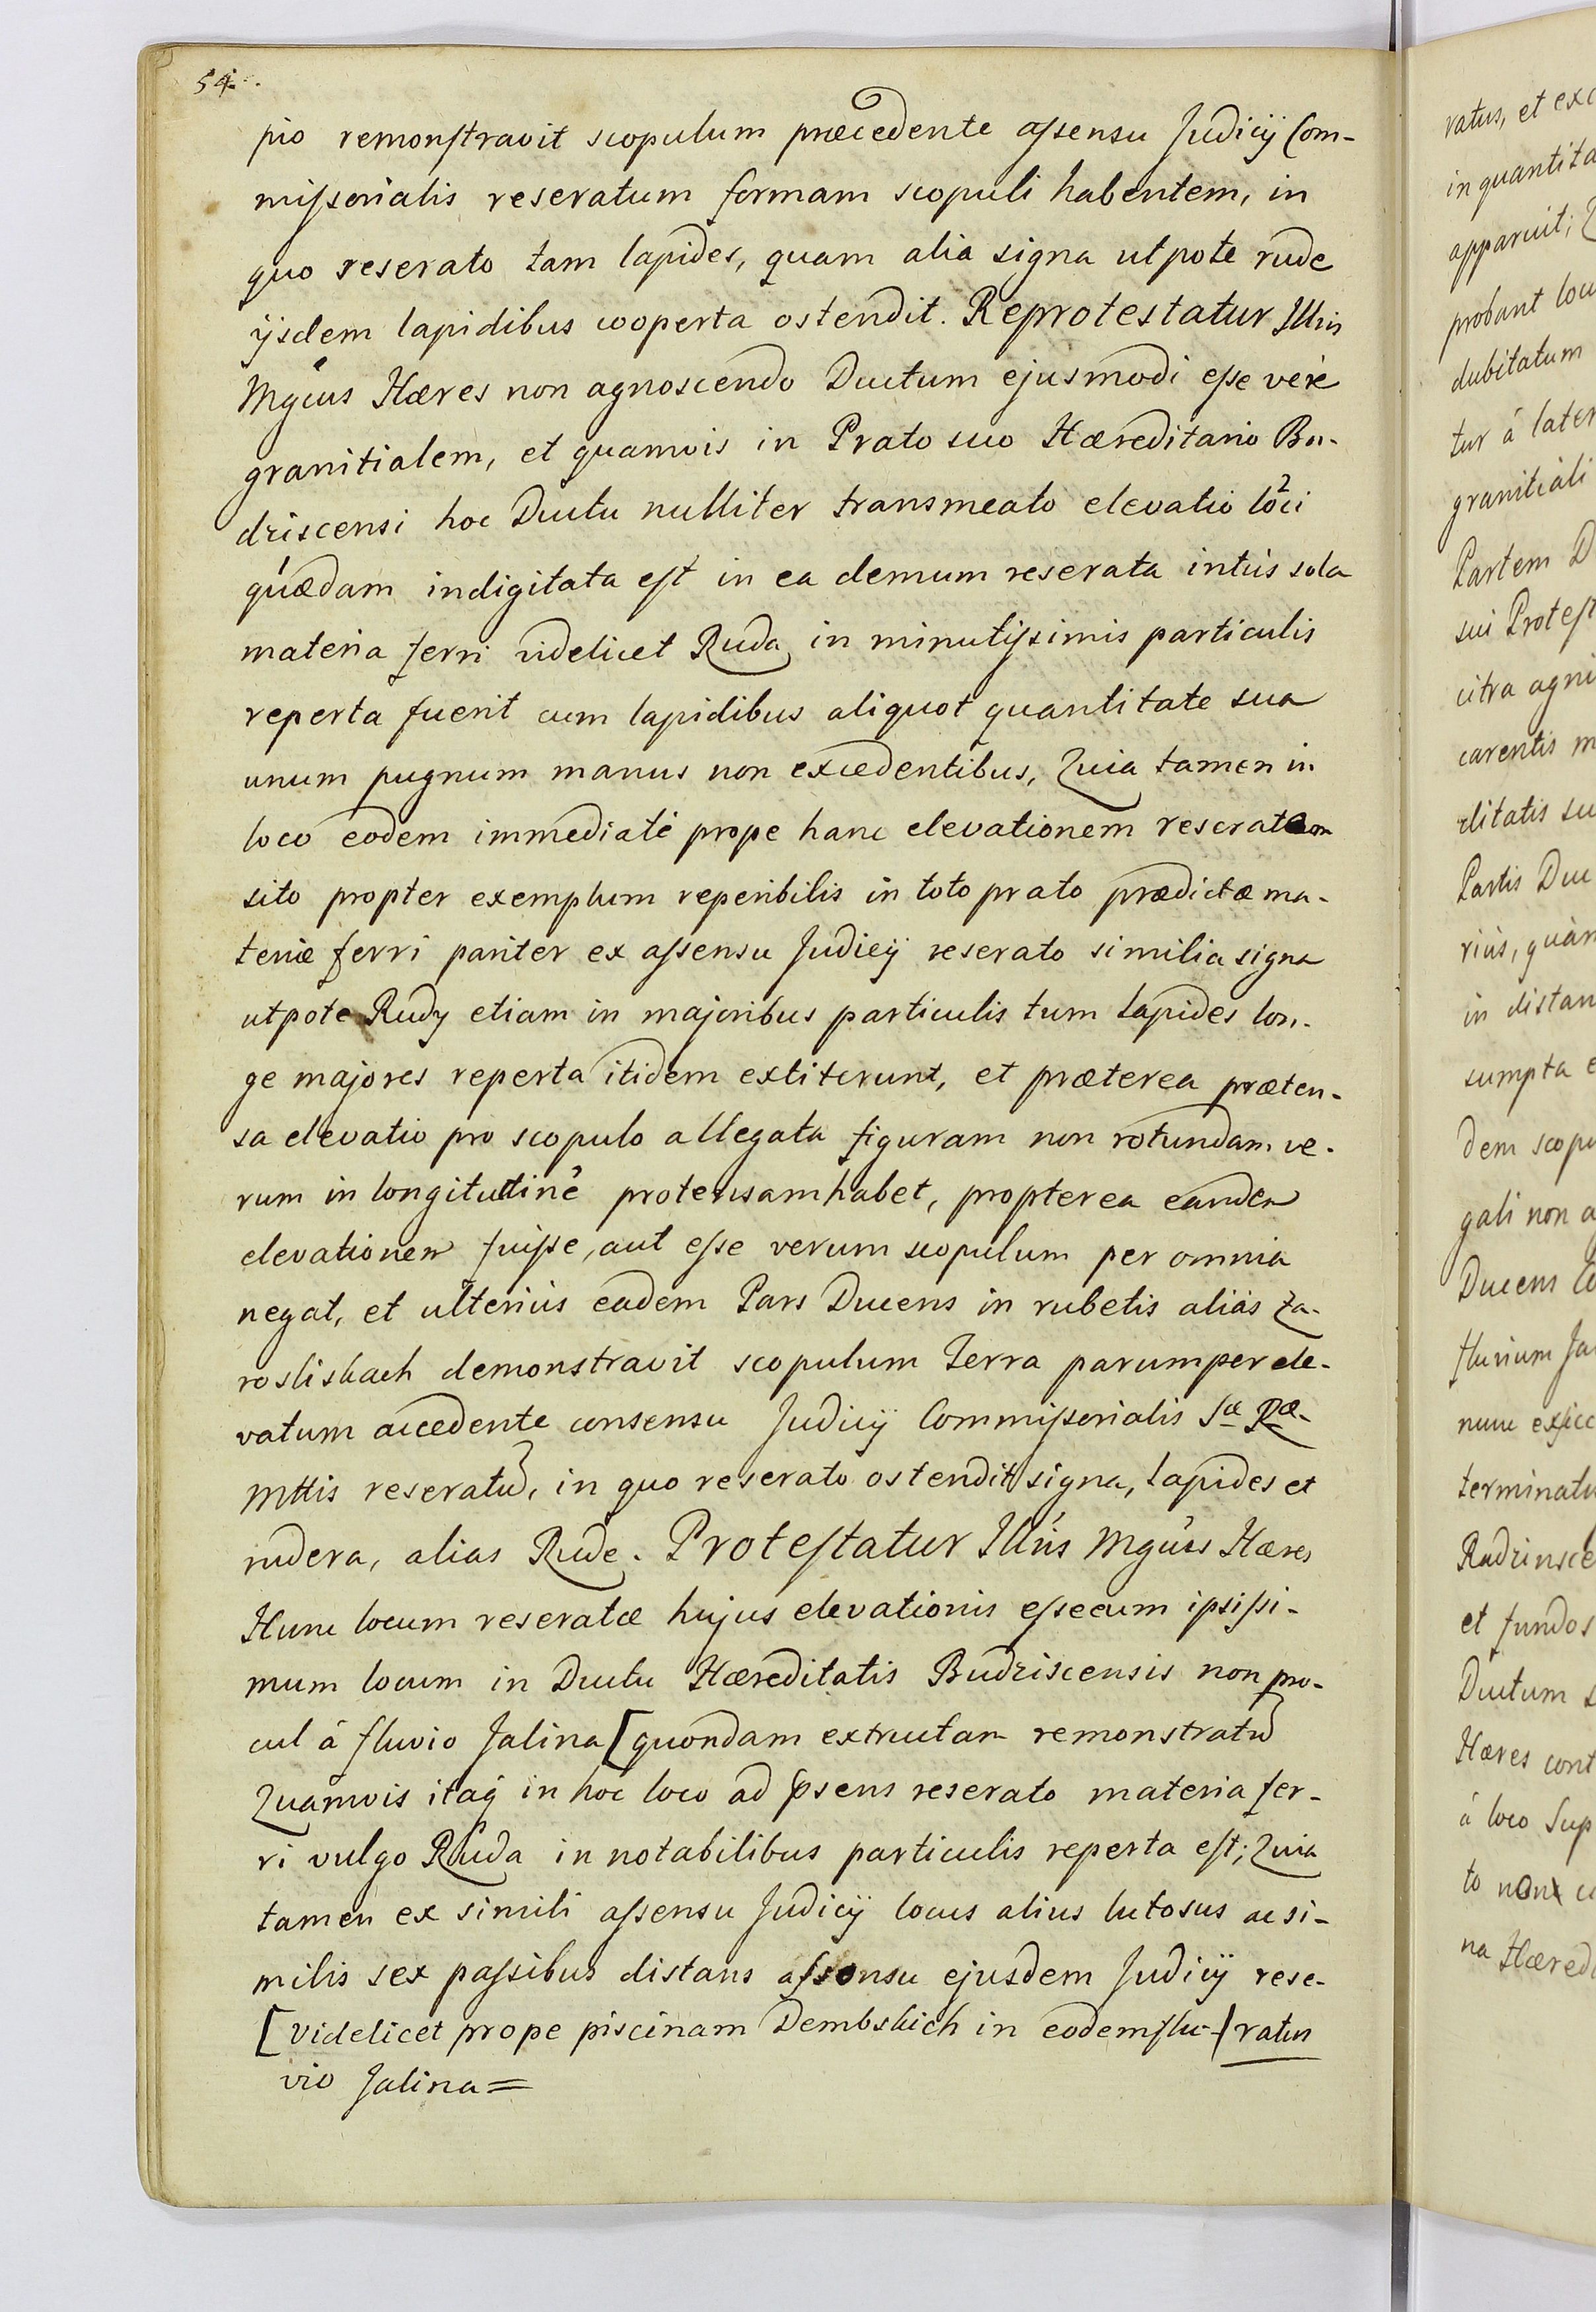 54.
pio remonstravit scopulum præcedente assensu Judicÿ Com-
missorialis reseratum formam scopuli habentem, in
quo reserato tam lapides, quam alia signa utpote rude
ÿsdem lapidibus cooperta ostendit. Reprotestatur Illris
Mgcus Hæres non agnoscendo Ductum ejusmodi esse veré
granitialem, et quamvis in Prato suo Hæreditario Bu-
driscensi hoc Ductu nulliter transmeato elevatio loci
quædam indigitata est in ea demum reserata intús sola
materia ferri videlicet Ruda in minutissimis particulis
reperta fuerit cum lapidibus aliquot quantitate sua
unum pugnum manus non excedentibus, Quia tamen in
loco eodem immediaté prope hanc elevationem reseratam
sito propter exemplum reperibilis in toto prato prædictæ ma-
teriæ ferri pariter ex assensu Judicÿ reserato similia signa
utpote Rudy etiam in majoribus particulis tum lapides lon-
ge majores reperta itidem extiterunt, et præterea præten-
sa elevatio pro scopulo allegata figuram non rotundam ve-
rum in longitudinẽ protensam habet, propterea eandem
elevationem fuisse, aut esse verum scopulum per omnia
negat, et ulteriús eadem Pars Ducens in rubetis aliás Za-
rosliskach demonstravit scopulum Terra parumper ele-
vatum accedente consensu Judicÿ Commissorialis Sæ Ræ
Mttis reseratũ, in quo reserato ostendit signa, lapides et
rudera, alias Rude. Protestatur Illris Mgcus Hæres
Hunc locum reseratæ hujus elevationis esse cum ipsissi-
mum locum in Ductu Hæreditatis Budziscensis non pro-
cul á fluvio Jalina [quondam extructam remonstratũ
Quamvis itaq̃ in hoc loco ad p̃sens reserato materia fer-
ri vulgo Ruda in notabilibus particulis reperta est; Quia
tamen ex simili assensu Judicÿ locus alius lutosus ac si-
milis sex passibus distans assensu ejusdem Judicÿ rese-
[videlicet prope piscinam Dembskich in eodem flu-] ratus
vio Jalina =
ratus, et exc
in quantita
apparuit; Q
probant locu
dubitatum
tur á later
granitiali
Partem D
sui Protest
citra agni
carentis m
ditatis su
Partis Duc
riús, quám
in distan
sumpta e
dem scopu
gali non a
Ducens lo
fluvium Ja
nunc exsicc
terminatu
Rudzinsce
et fundos
Ductum s
Hæres cont
á loco Sup
to non c
na Hæredi